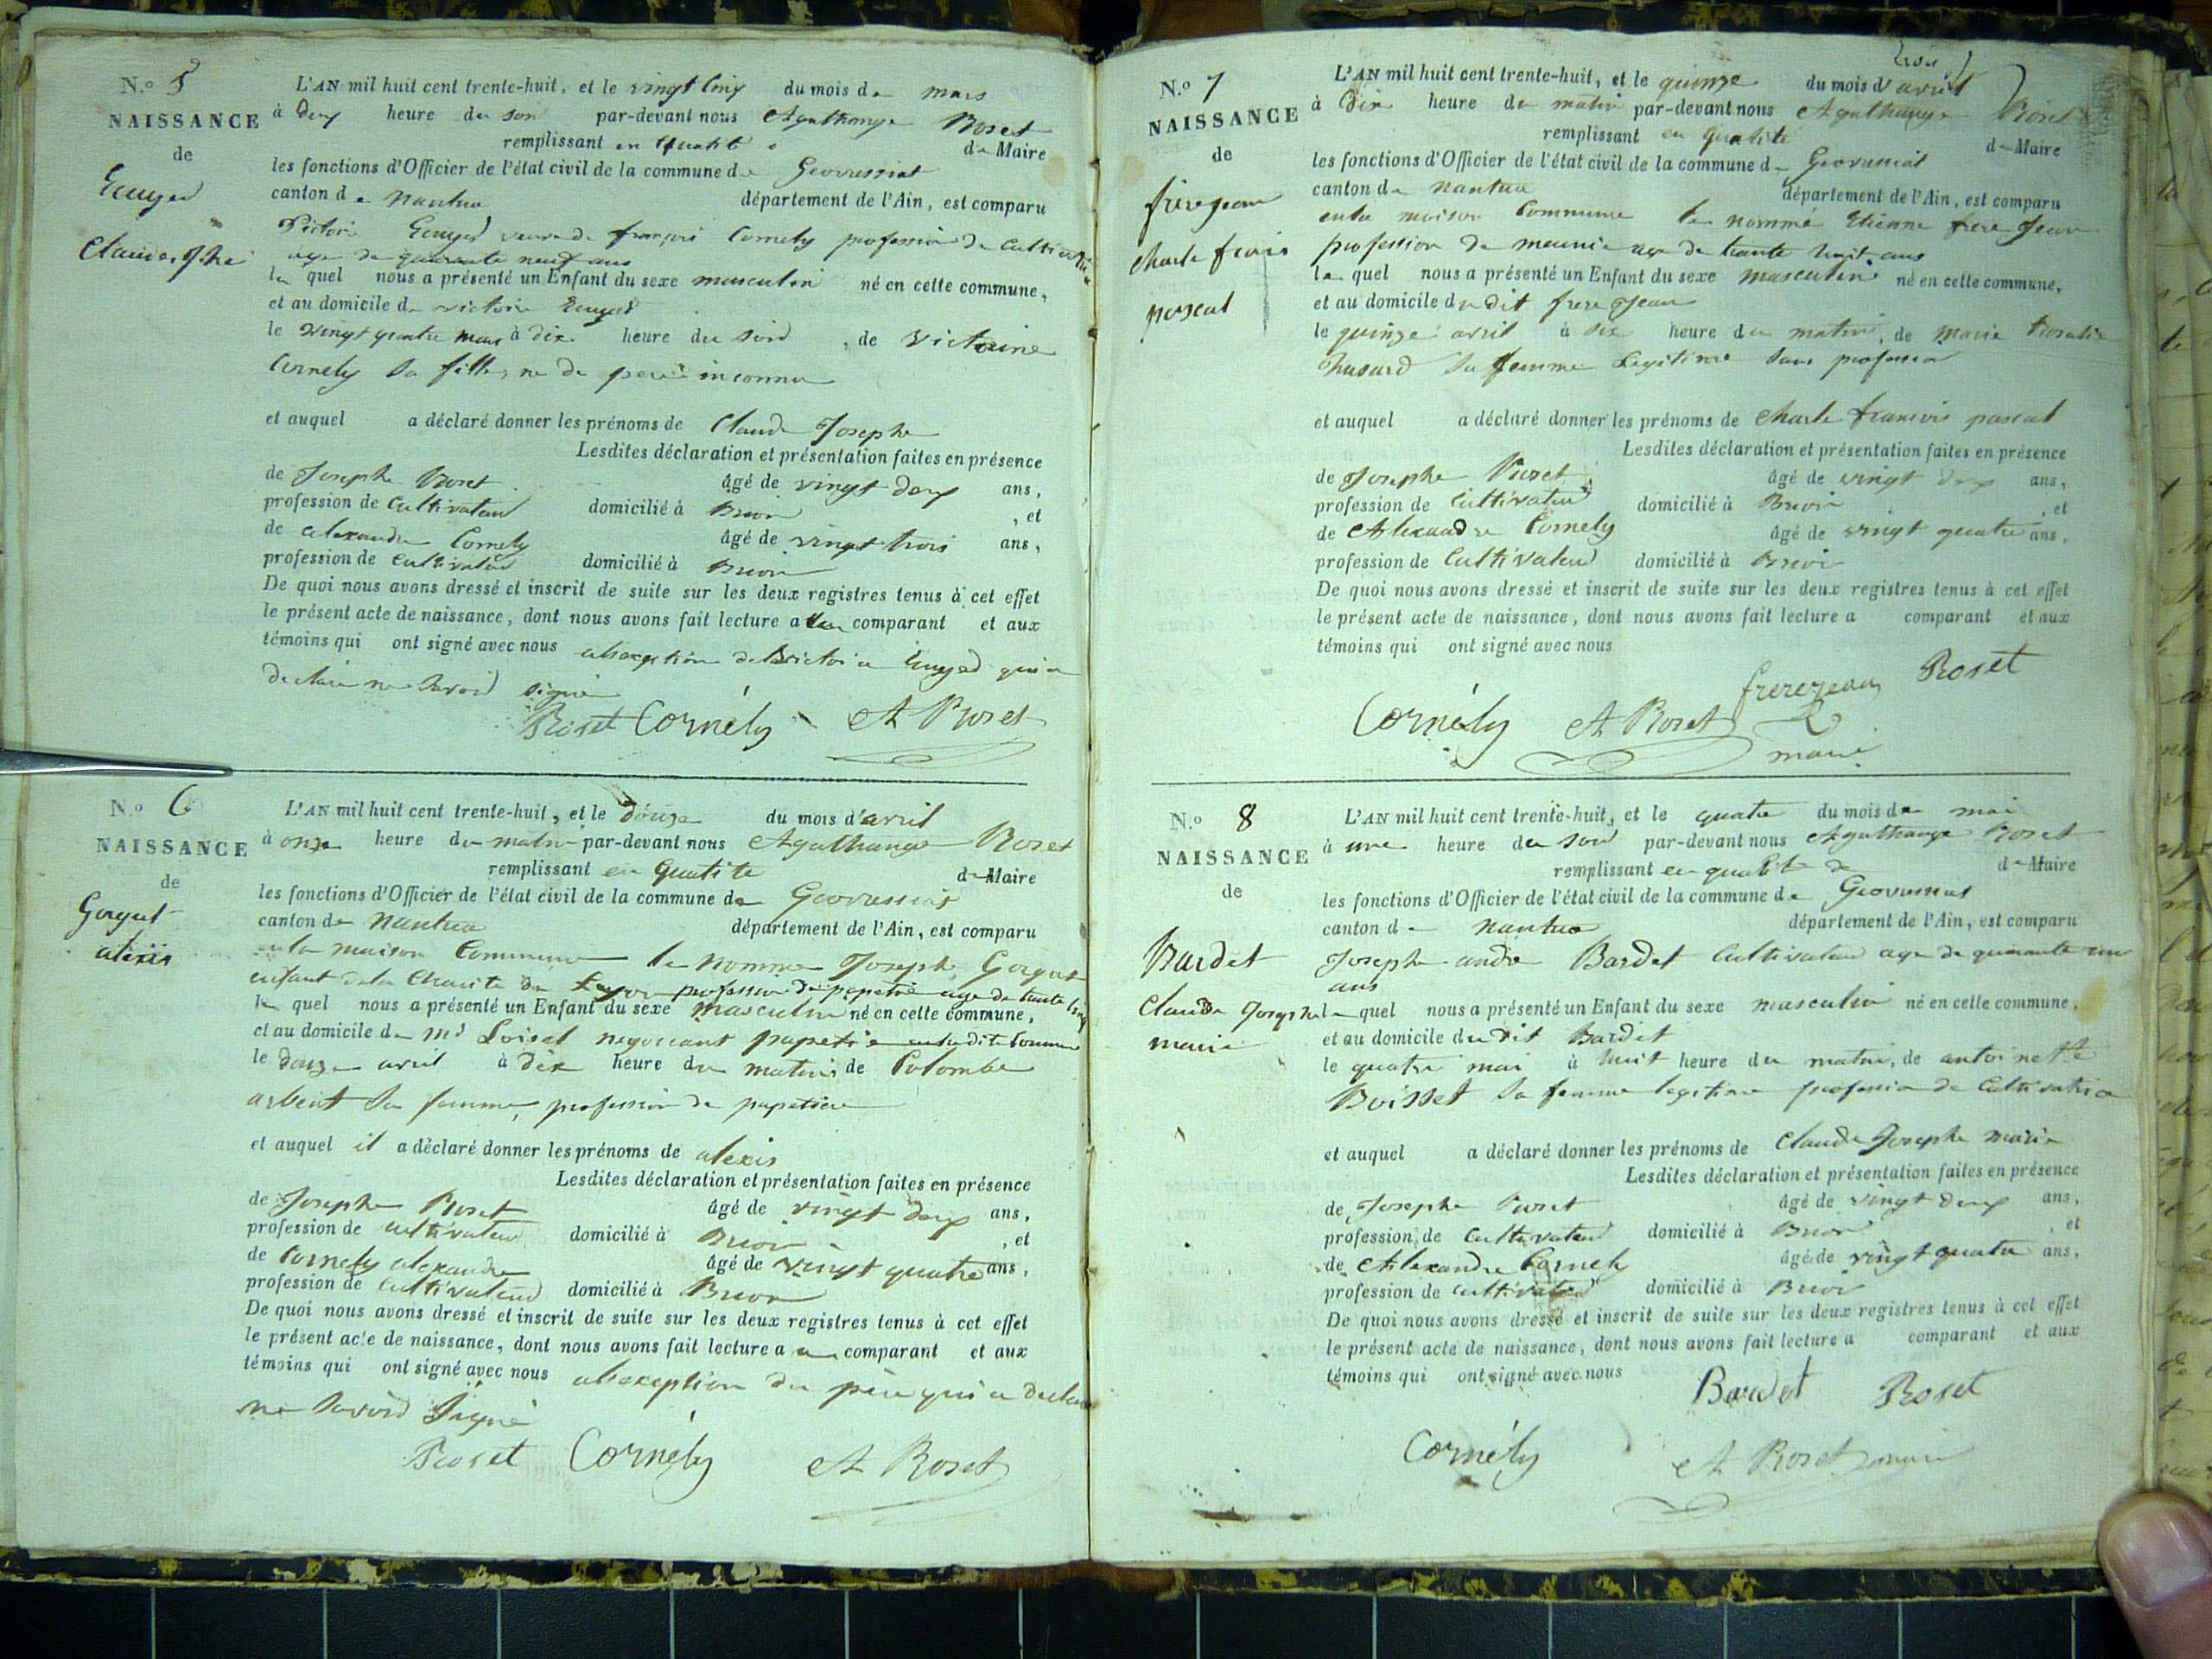 N.o 5
NAISSANCE
de
Claude Jph
L'AN mil huit cent trente-huit, et le vingt cinq du mois de mars
à deux heure du soir par-devant nous Agathange Roset
remplissant en qualité de Maire
les fonctions d'Officier de l'état civil de la commune de Geovressiat
canton de Nantua département de l'Ain, est comparu
veuve de françois Cornely profession de
age de quarante neuf ans
le quel nous a présenté un Enfant du sexe masculin né en cette commune,
et au domicile de victoire
le vingt quatre mars à dix heure du soir, de victorine
Cornely sa fille, ne de père inconnu
et auquel a déclaré donner les prénoms de Claude Josephe
Lesdites déclaration et présentation faites en présence
de Josephe Roset âgé de vingt deux ans,
profession de Cultivateur domicilié à Brion, et
de alexandre Cornely âgé de vingt trois ans,
profession de Cultivateur domicilié à Brion
De quoi nous avons dressé et inscrit de suite sur les deux registres tenus à cet effet
le présent acte de naissance, dont nous avons fait lecture a comparant et aux
témoins qui ont signé avec nous
declaré ne savoir signé
Roset Cornély A Roset
N.o 6
NAISSANCE
de
Gorgut
alexis
L'AN mil huit cent trente-huit, et le douze du mois d'avril
à onze heure du matin par-devant nous Agathange Roset
remplissant en qualité de Maire
les fonctions d'Officier de l'état civil de la commune de Geovressiat
canton de Nantua département de l'Ain, est comparu
en la maison Commune le nommé Joseph Gorgut
enfant de la Charité de Lyon profession de papetié age de trente cinq
le quel nous a présenté un Enfant du sexe masculin né en cette commune,
et au domicile de mr Loisel negociant papetié
le douze avril à dix heure du matin, de Colombe
arbent sa femme, profession de papetiere
et auquel il a déclaré donner les prénoms de alexis
Lesdites déclaration et présentation faites en présence
de Josephe Roset âgé de vingt deux ans,
profession de cultivateur domicilié à Brion, et
de Cornely alexandre âgé de vingt quatre ans,
profession de Cultivateur domicilié à Brion
De quoi nous avons dressé et inscrit de suite sur les deux registres tenus à cet effet
le présent acte de naissance, dont nous avons fait lecture a comparant et aux
témoins qui ont signé avec nous alexception du père qui a declaré
ne savoir Signé
Roset Cornély A Roset
N.o 7
NAISSANCE
de
frerejean
charle frois
pascal
L'AN mil huit cent trente-huit, et le quinze du mois d'avril
à Dix heure du matin par-devant nous Agathange Roset
remplissant en qualité de Maire
les fonctions d'Officier de l'état civil de la commune de Geovressiat
canton de Nantua département de l'Ain, est comparu
en la maison Commune le nommé Etienne frere Jean
profession de meunié age de trente huit ans
le quel nous a présenté un Enfant du sexe masculin né en cette commune,
et au domicile du dit frere Jean
le quinze avril à six heure du matin, de Marie
sa femme Legitime sans profession
et auquel a déclaré donner les prénoms de charle francois pascal
Lesdites déclaration et présentation faites en présence
de Josephe Roset âgé de vingt deux ans,
profession de Cultivateur domicilié à Brion, et
de Alexandre Cornely âgé de vingt quatre ans,
profession de Cultivateur domicilié à Brion
De quoi nous avons dressé et inscrit de suite sur les deux registres tenus à cet effet
le présent acte de naissance, dont nous avons fait lecture a comparant et aux
témoins qui ont signé avec nous
frerejean Roset
Cornély A Roset
maire
N.o 8
NAISSANCE
de
Bardet
Claude Josephe
marie
L'AN mil huit cent trente-huit, et le quatre du mois de mai
à une heure du soir par-devant nous Agathange Roset
remplissant en qualité de de Maire
les fonctions d'Officier de l'état civil de la commune de Geovressiat
canton de Nantua département de l'Ain, est comparu
Joseph andré Bardet Cultivateur age de quarante un
ans
le quel nous a présenté un Enfant du sexe masculin né en cette commune,
et au domicile du dit Bardet
le quatre mai à huit heure du matin, de antoinette
Boisset sa femme legitime profession de Cultivatrice
et auquel a déclaré donner les prénoms de Claude Josephe Marie
Lesdites déclaration et présentation faites en présence
de Josephe Roset âgé de vingt deux ans,
profession de Cultivateur domicilié à Brion, et
de Alexandre Cornely âgé de vingt quatre ans,
profession de cultivateur domicilié à Brion
De quoi nous avons dressé et inscrit de suite sur les deux registres tenus à cet effet
le présent acte de naissance, dont nous avons fait lecture a comparant et aux
témoins qui ont signé avec nous
Bardet Roset
Cornély A Roset maire